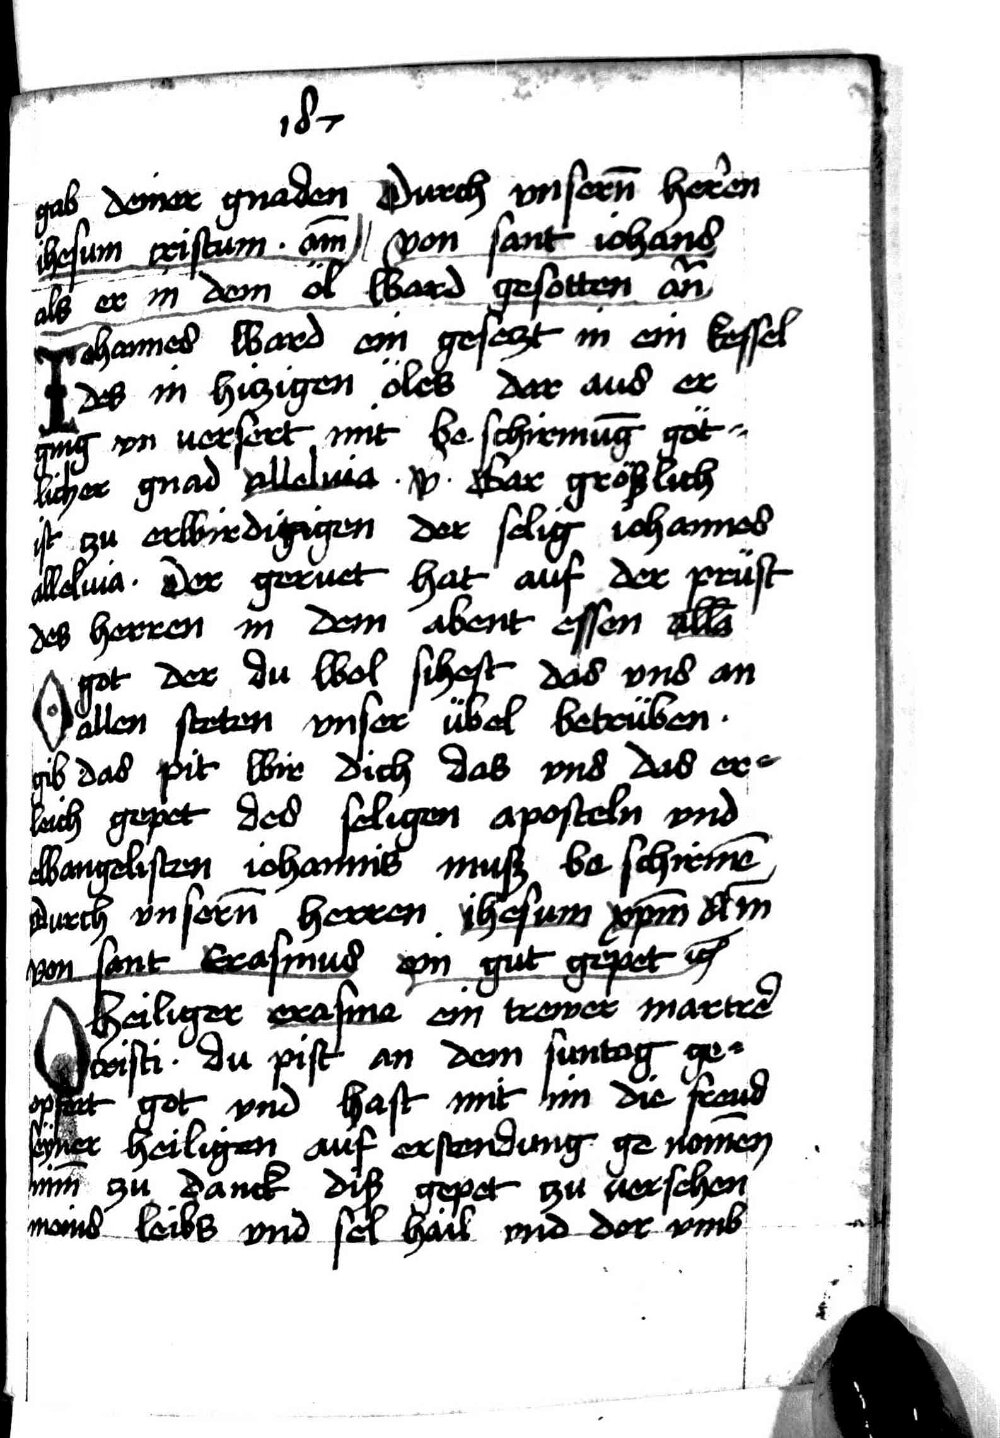 187
gab deiner gnaden Durch vnsern̄ herren
ihesum cristum · am̄ von sant iohans
als er in dem öl Ward gesotten an̄
Iohannes Ward ein gesetzt in ein kessel
des in hitzigen öles dar aus er
ging vn uersert mit be schirmūg göt-
licher gnad alleluia · v · Gar größlich
ist zu erwirdigigen der selig iohannes
alleluia · Der geruet hat auf der prüst
des herren in dem abent essen all̄a
O got der du Wol sihest das vns an
allen steten vnser übel betrüben ·
gib das pit Wir dich das vns das er-
leich gepet des seligen aposteln vnd
ewangelisten iohannis muß be schirmē
durch vnsern̄ herren ihesum xp̄m Am̄
von sant Erasmus ein gut gepet
O heiliger erasme ein trewer martrer
cristi · du pist an dem suntag ge-
opfert got vnd hast mit im die freud
seyner heiligen auf erstendung ge nom̄en
nim̄ zu danck diß gepet zu uersehen
meins leibs vnd sel hail vnd dor vmb